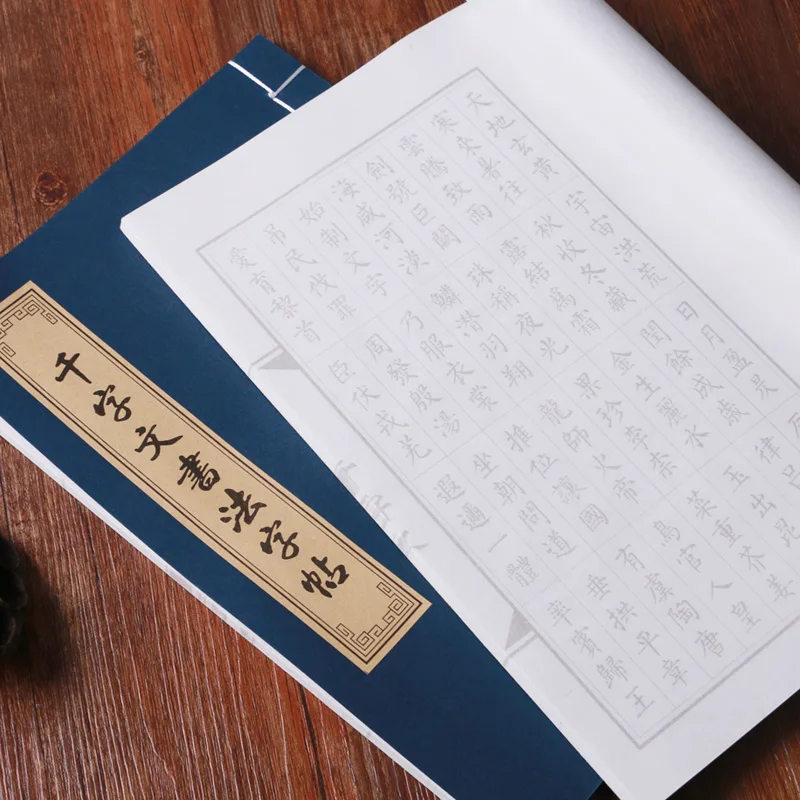 千字文書法字帖
天地玄黃宇宙洪荒日月盈昃辰
寒來暑往秋收冬藏閏餘成歲律呂
雲騰致雨露結爲霜金生麗水玉出昆
劍號巨闕珠稱夜光果珍李柰菜重芥姜
海咸河淡鱗潜羽翔龍師火帝鳥官人皇
始制文字乃服衣裳推位讓國有虞陶唐
吊民伐罪周發殷湯坐朝問道垂拱平章
愛育黎首臣伏戎羌遐邇一體率賓歸王